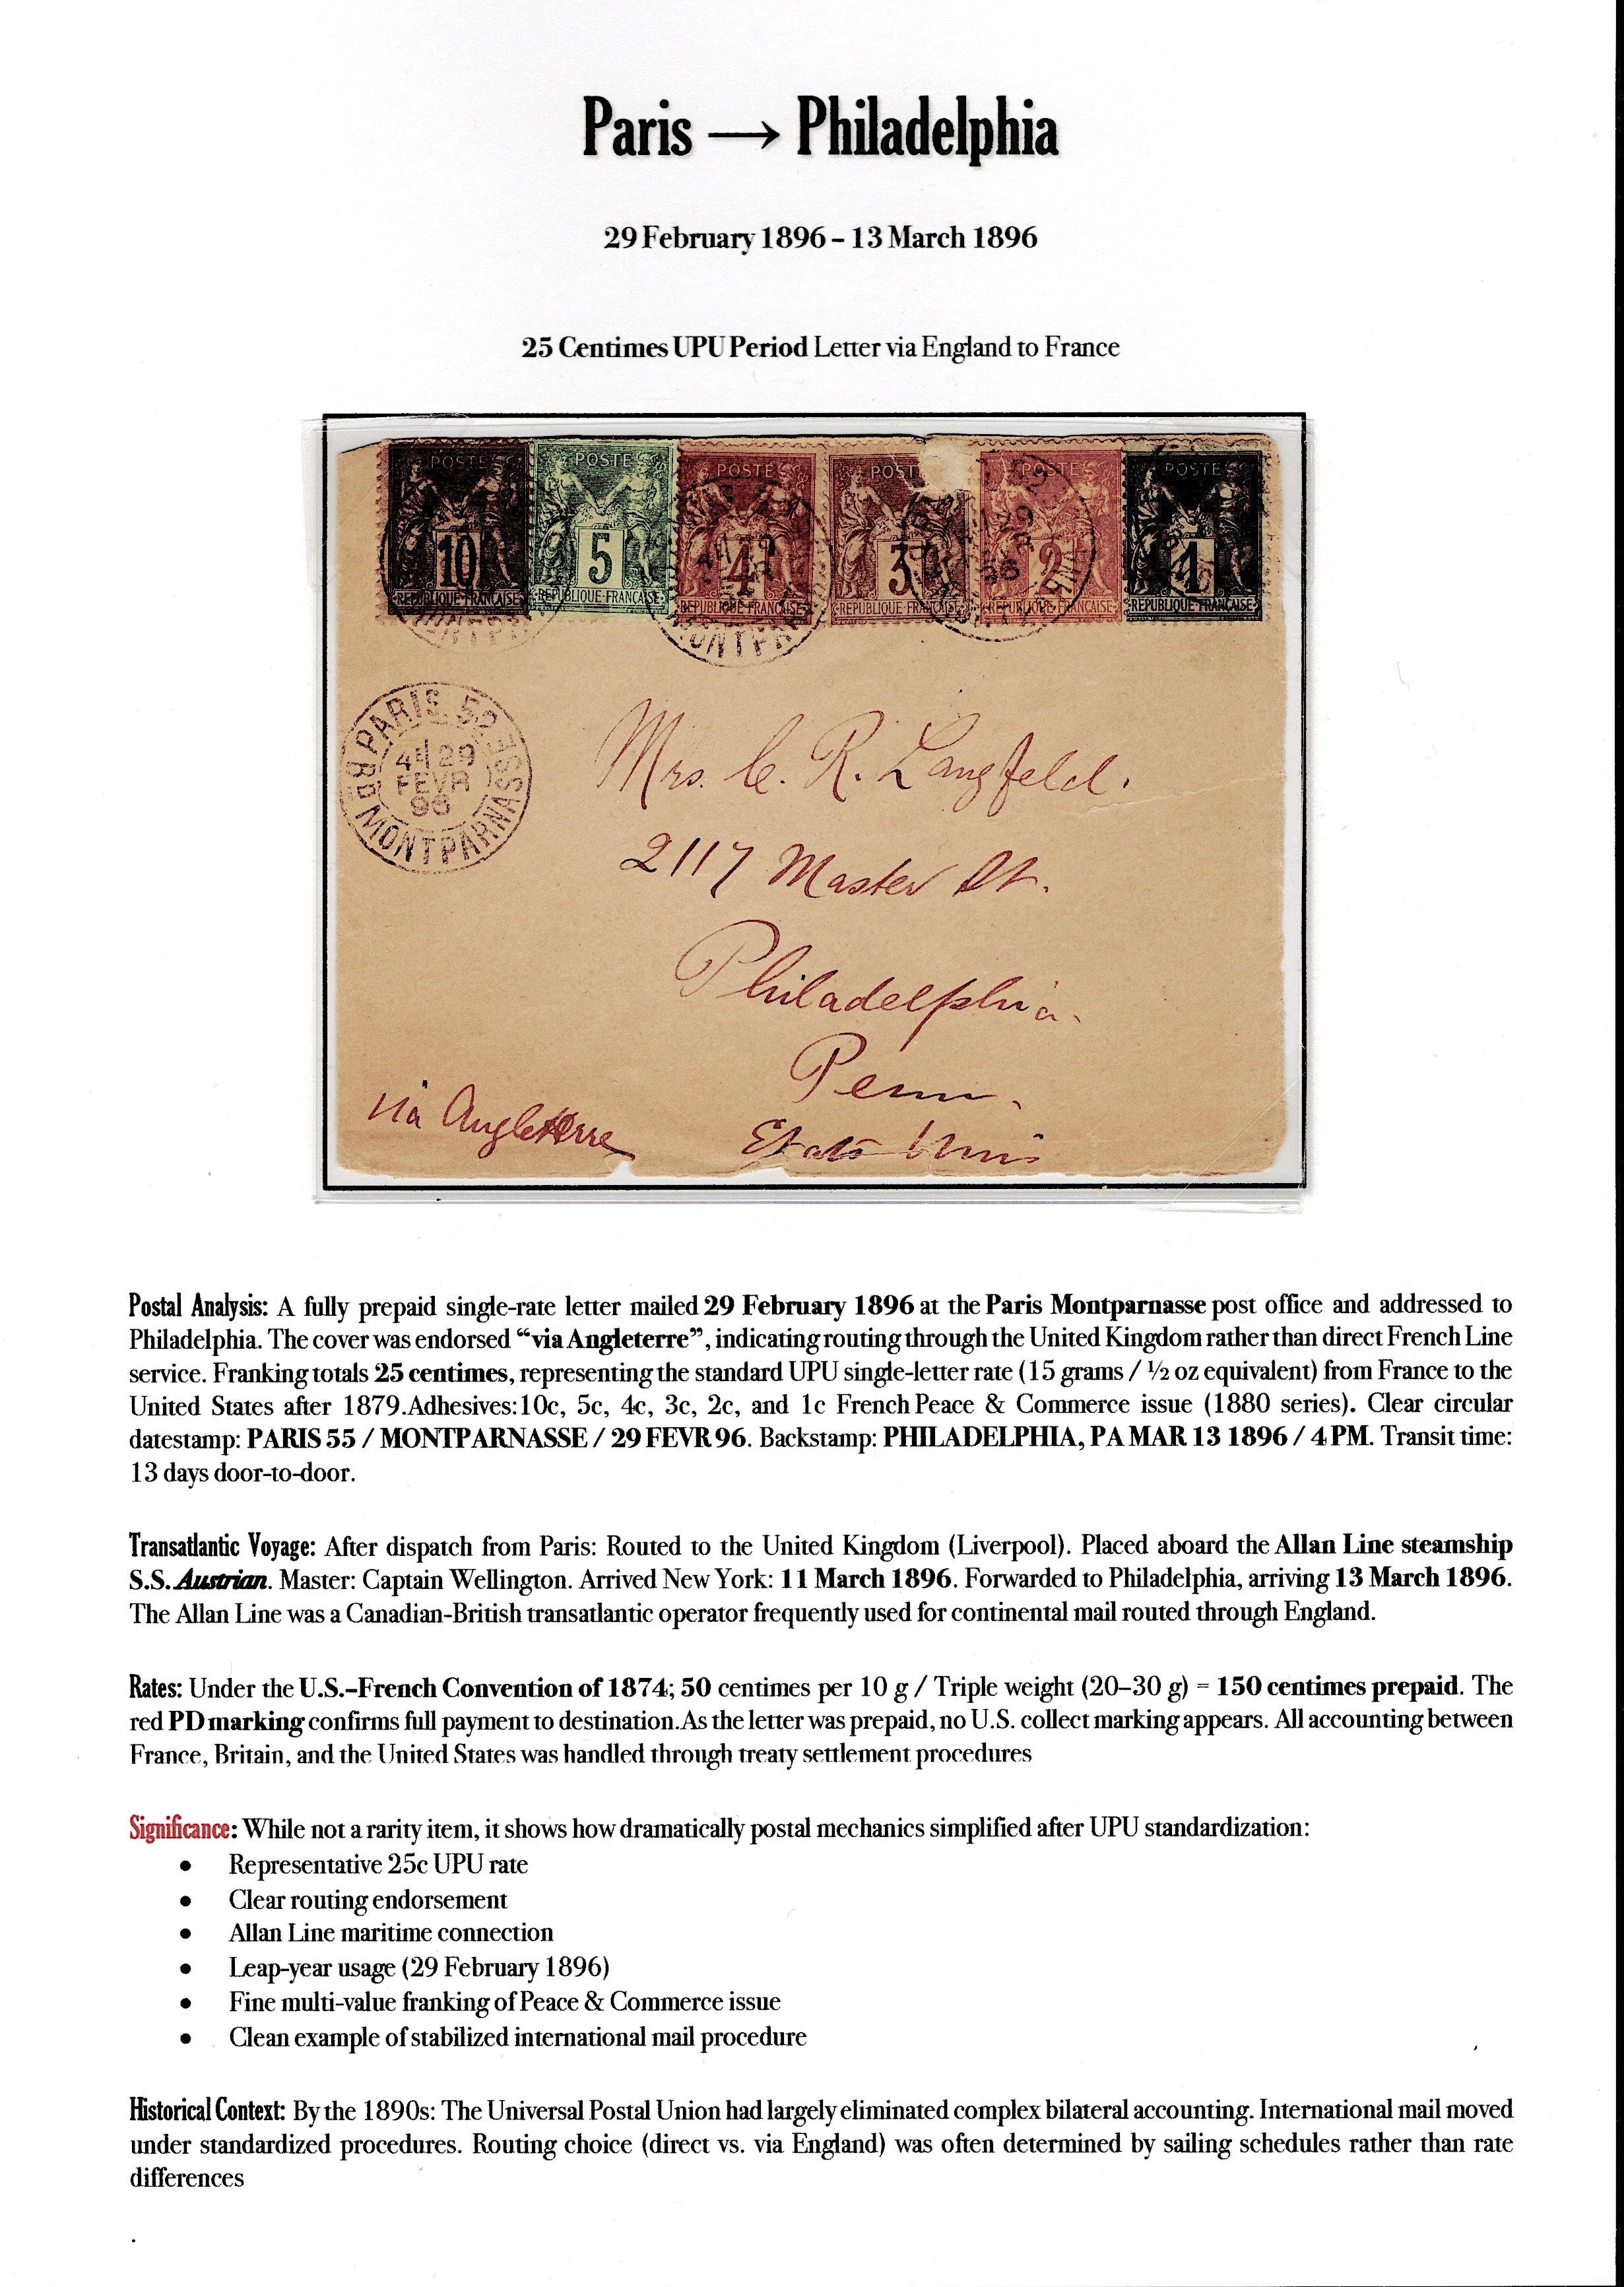 Paris → Philadelphia
29 February 1896 – 13 March 1896
25 Centimes UPU Period Letter via England to France
POSTE POSTE POSTE POSTE POSTE POSTE
10 5 4 3 2 1
REPUBLIQUE FRANÇAISE REPUBLIQUE FRANÇAISE REPUBLIQUE FRANÇAISE REPUBLIQUE FRANÇAISE REPUBLIQUE FRANÇAISE REPUBLIQUE FRANÇAISE
PARIS. 52
29
FEVR
96
MONTPARNASSE
Mrs. C. R. Langfeld.
2117 Master St.
Philadelphia.
Penn.
via Angleterre
Etats Unis
Postal Analysis: A fully prepaid single-rate letter mailed 29 February 1896 at the Paris Montparnasse post office and addressed to
Philadelphia. The cover was endorsed “via Angleterre”, indicating routing through the United Kingdom rather than direct French Line
service. Franking totals 25 centimes, representing the standard UPU single-letter rate (15 grams / ½ oz equivalent) from France to the
United States after 1879.Adhesives:10c, 5c, 4c, 3c, 2c, and 1c French Peace & Commerce issue (1880 series). Clear circular
datestamp: PARIS 55 / MONTPARNASSE / 29 FEVR 96. Backstamp: PHILADELPHIA, PA MAR 13 1896 / 4 PM. Transit time:
13 days door-to-door.
Transatlantic Voyage: After dispatch from Paris: Routed to the United Kingdom (Liverpool). Placed aboard the Allan Line steamship
S.S. Austrian. Master: Captain Wellington. Arrived New York: 11 March 1896. Forwarded to Philadelphia, arriving 13 March 1896.
The Allan Line was a Canadian-British transatlantic operator frequently used for continental mail routed through England.
Rates: Under the U.S.–French Convention of 1874; 50 centimes per 10 g / Triple weight (20–30 g) = 150 centimes prepaid. The
red PD marking confirms full payment to destination.As the letter was prepaid, no U.S. collect marking appears. All accounting between
France, Britain, and the United States was handled through treaty settlement procedures
Significance: While not a rarity item, it shows how dramatically postal mechanics simplified after UPU standardization:
• Representative 25c UPU rate
• Clear routing endorsement
• Allan Line maritime connection
• Leap-year usage (29 February 1896)
• Fine multi-value franking of Peace & Commerce issue
• Clean example of stabilized international mail procedure
Historical Context: By the 1890s: The Universal Postal Union had largely eliminated complex bilateral accounting. International mail moved
under standardized procedures. Routing choice (direct vs. via England) was often determined by sailing schedules rather than rate
differences
.